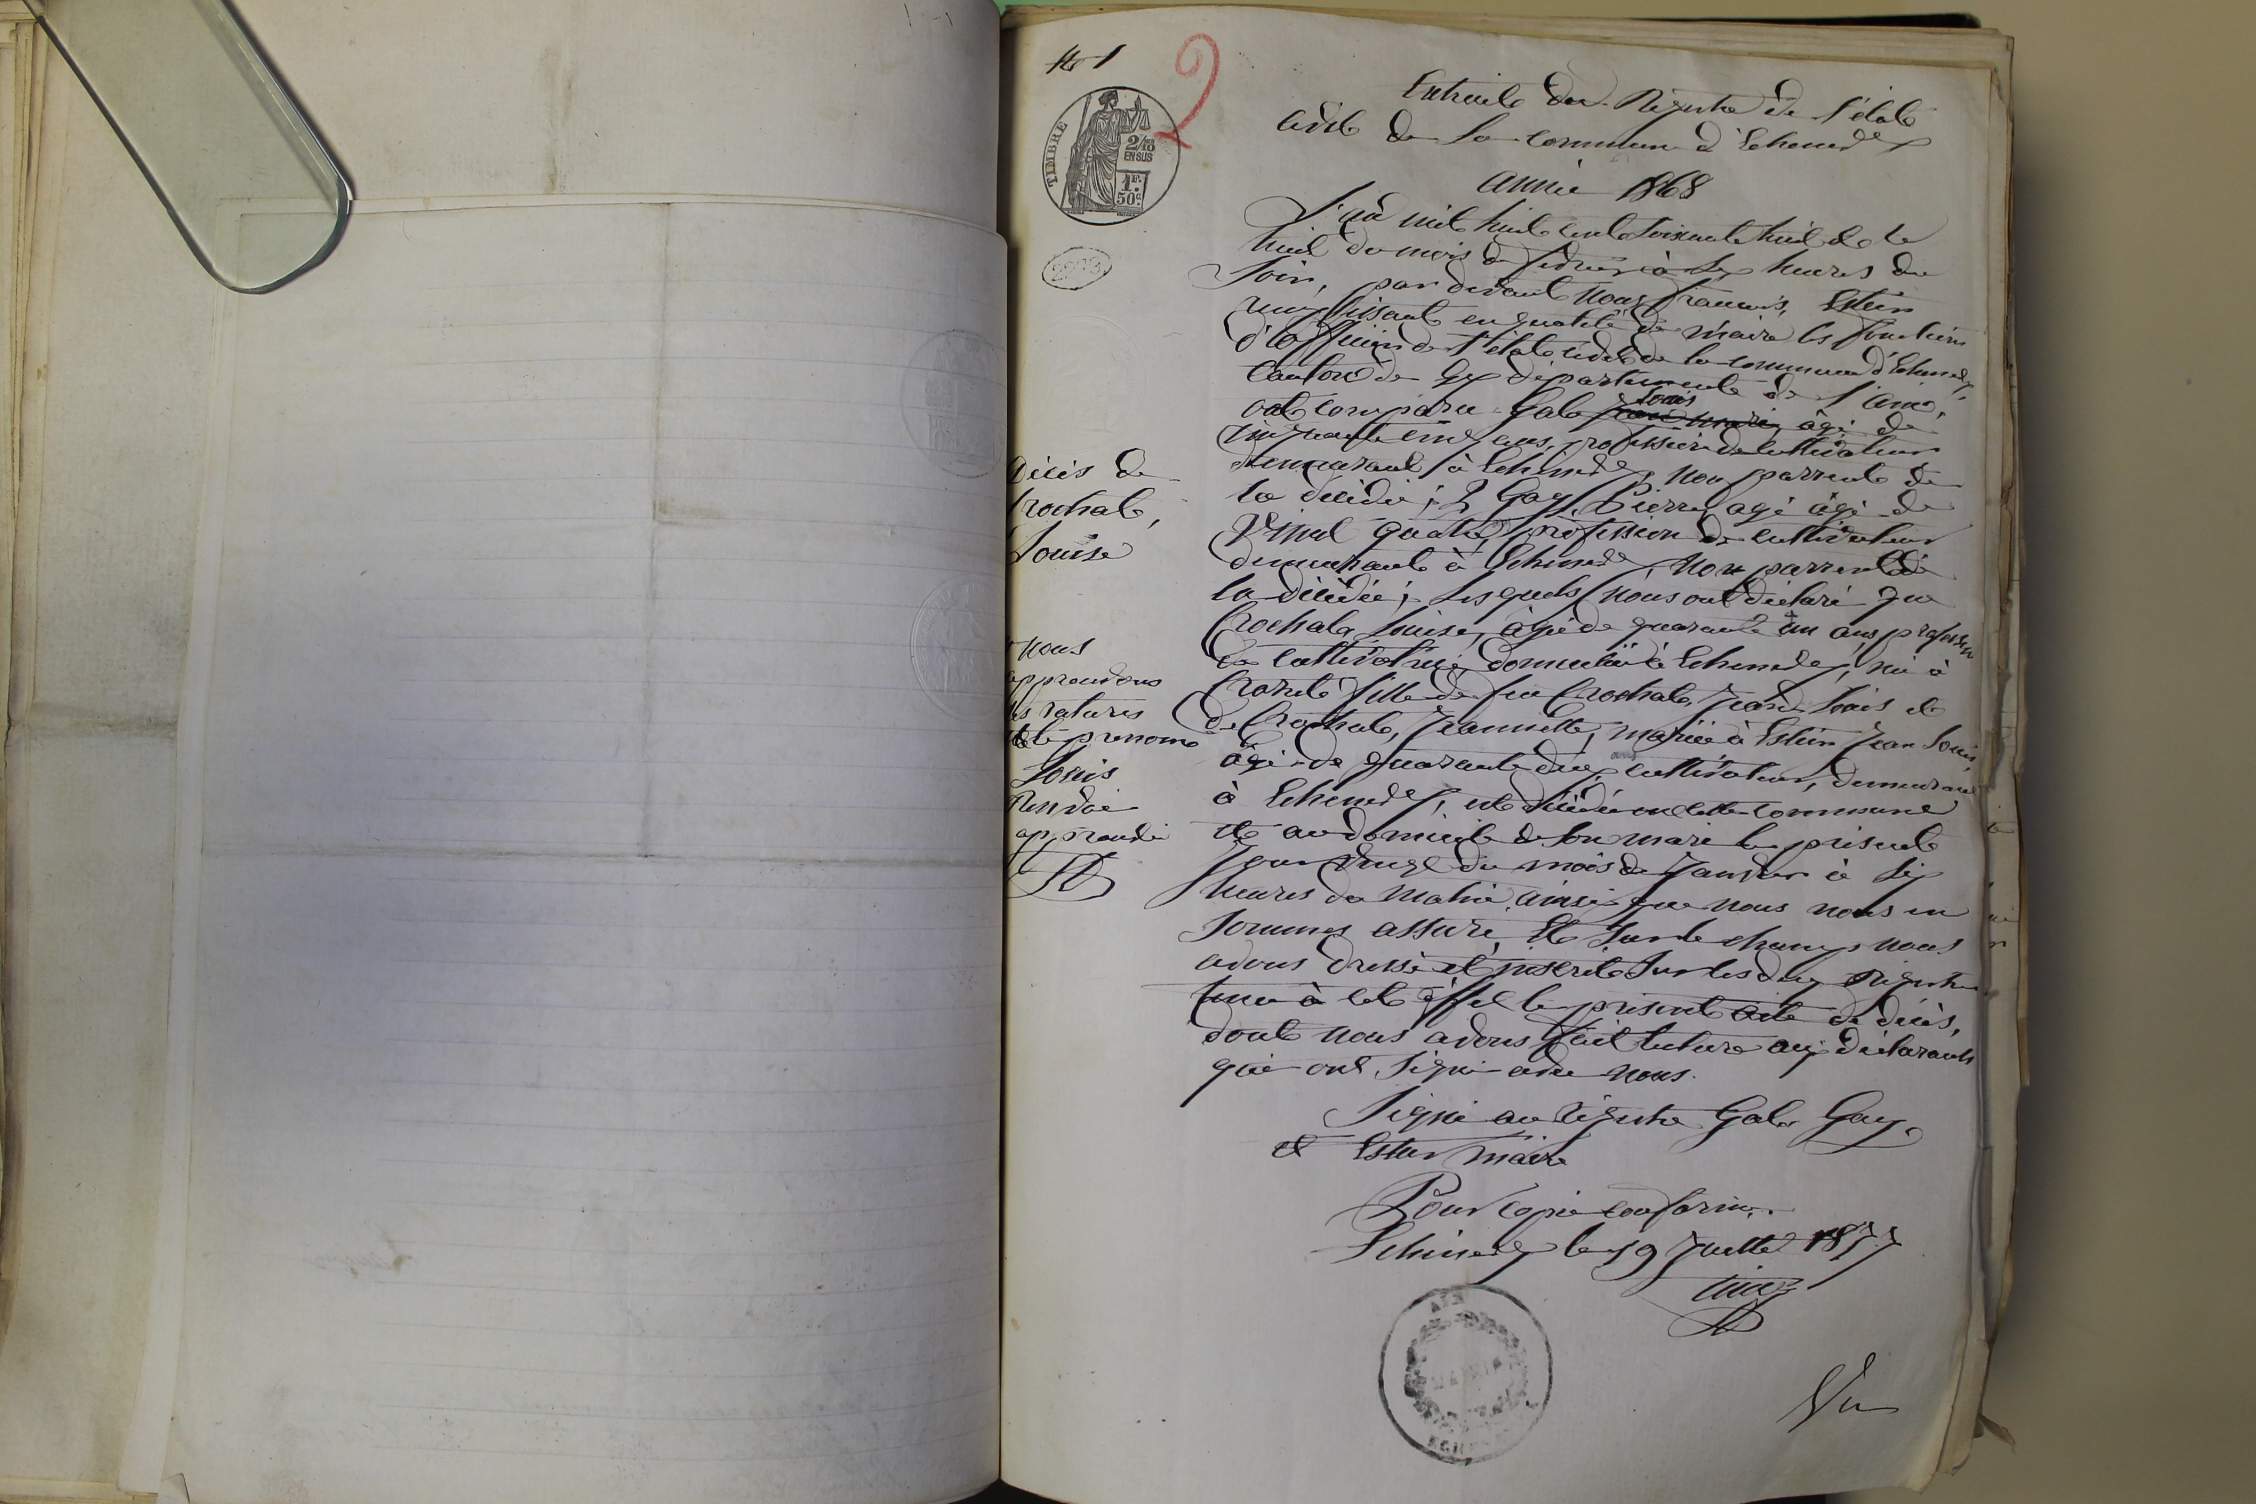 No 1
2
TIMBRE
2/10
EN SUS
1F.
50c.
Extrait du Régistre de l'état
civil de la commune d'Echenevex
Année 1868
L'an mil huit cent soixante huit et le
huit du mois de février à six heures du
soir, par devant nous François, Estier
remplissant en qualité de maire les fonctions
d'officier de l'état civil de la commune d'Echenevex
Canton de Gex département de l'ain,
Louis
ont comparu Galo âgé de
cinquante cinq ans, profession de cultivateur
demeurant à Echenevex, non parrent de
la décédée; 2 Gay Pierre, agé âgé de
vingt quatre, profession de cultivateur
demeurant à Echenevex, non parrent de
la décédée; Lesquels nous ont déclaré que
Crochat, Louise, âgée de quarante un ans profession
de cultivatrice domiciliée à Echenevex, née à
Crozet fille de feu Crochat, Jean Louis et
de Crochat, Jeannette, mariée à Estier Jean Louis,
âgé de quarante deux ans cultivateur, demeurant
à Echenevex, est décédée en cette commune
et au domicile de son mari le présent
jour du mois de Janvier à six
heures du matin ainsi que nous nous en
sommes assuré, Et sur le champs nous
avons dressé et inscrit sur les deux régistres
tenu à cet effet le présent acte de décès,
dont nous avons fait lecture aux déclarants
qui ont signé avec nous.
Signé au régistre Galo Gay,
et Estier maire
Pour copie conforme.
Echenevex le 19 Juillet 1877
AIN
MAIRIE
Vu
Décès de
Crochat,
Louise
nous
approuvons
les ratures
et le prenom
Louis
Renvoi
approuvé